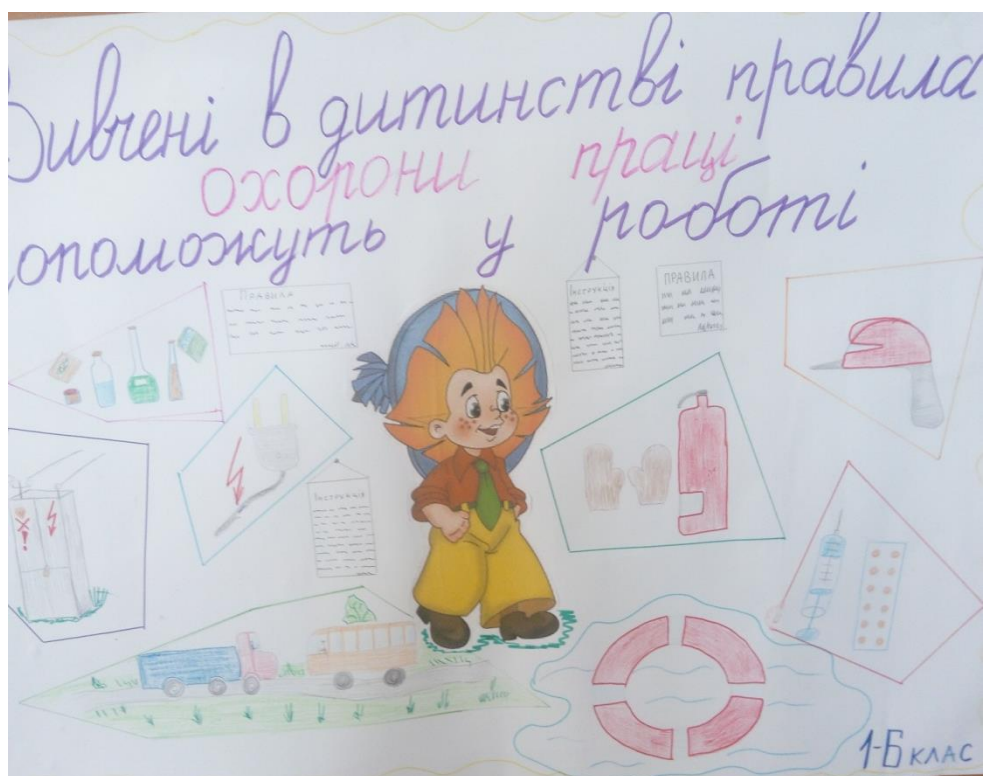 Вивчені в дитинстві правила
охорони праці
допоможуть у роботі
Правила
Інструкція
ПРАВИЛА
Інструкція
1-Б клас